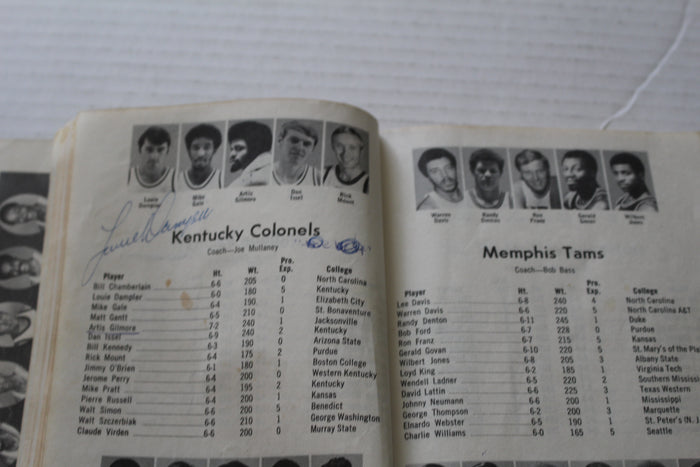 Louie Dampier
Mike Gale
Artis Gilmore
Dan Issel
Rick Mount
Louie Dampier
Kentucky Colonels
Coach—Joe Mullaney
Player Ht. Wt. Pro. Exp. College
Bill Chamberlain 6-6 205 0 North Carolina
Louie Dampier 6-0 180 5 Kentucky
Mike Gale 6-4 190 1 Elizabeth City
Matt Gantt 6-5 210 0 St. Bonaventure
Artis Gilmore 7-2 240 1 Jacksonville
Dan Issel 6-9 240 2 Kentucky
Bill Kennedy 6-3 190 0 Arizona State
Rick Mount 6-4 175 2 Purdue
Jimmy O'Brien 6-1 180 1 Boston College
Jerome Perry 6-4 200 0 Western Kentucky
Mike Pratt 6-4 195 2 Kentucky
Pierre Russell 6-4 200 1 Kansas
Walt Simon 6-6 200 5 Benedict
Walt Szczerbiak 6-6 210 1 George Washington
Claude Virden 6-6 200 0 Murray State
Warren Davis
Randy Denton
Ron Franz
Gerald Govan
Wilbert Jones
Memphis Tams
Coach—Bob Bass
Player Ht. Wt. Pro. Exp. College
Lee Davis 6-8 240 4 North Carolina
Warren Davis 6-6 220 5 North Carolina A&T
Randy Denton 6-11 245 1 Duke
Bob Ford 6-7 228 0 Purdue
Ron Franz 6-7 215 5 Kansas
Gerald Govan 6-10 220 5 St. Mary's of the Pla
Wilbert Jones 6-8 205 3 Albany State
Loyd King 6-2 185 1 Virginia Tech
Wendell Ladner 6-5 220 2 Southern Mississi
David Lattin 6-6 225 3 Texas Western
Johnny Neumann 6-6 200 1 Mississippi
George Thompson 6-2 200 3 Marquette
Elnardo Webster 6-5 190 1 St. Peter's (N. J
Charlie Williams 6-0 165 5 Seattle